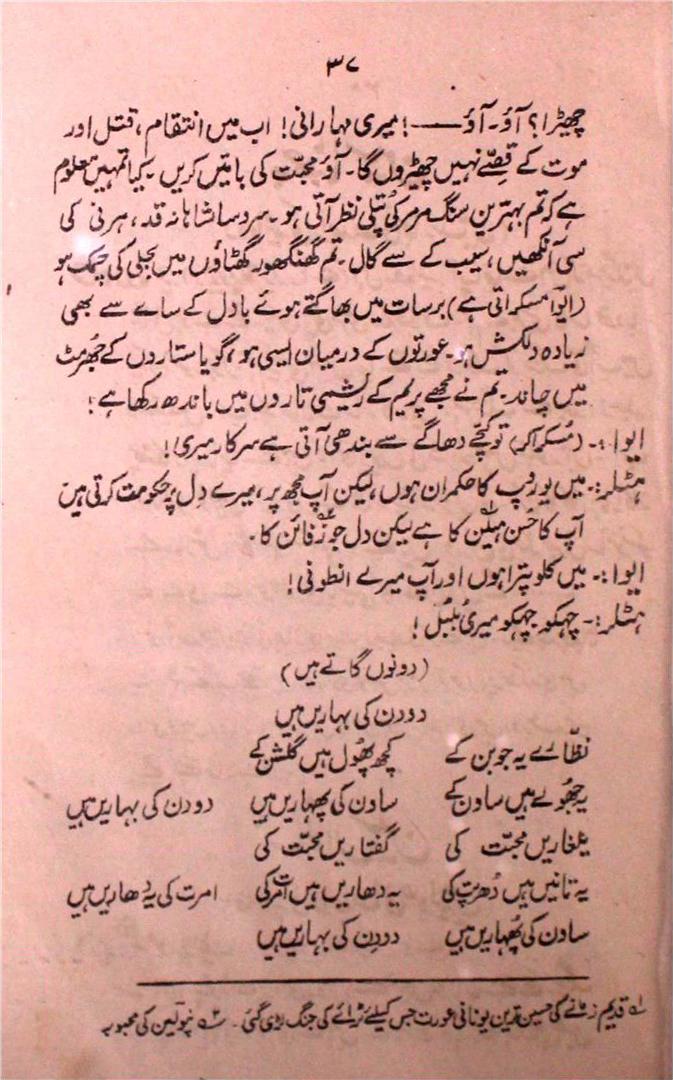 ۳۷
چھیڑا؟ آؤ۔ آؤ——! میری مہارانی! اب میں انتقام، قتل اور
موت کے قصّے نہیں چھیڑوں گا۔ آؤ محبّت کی باتیں کریں۔ کیا تمہیں معلوم
ہے کہ تم بہترین سنگ مرمر کی پُتلی نظر آتی ہو۔ سرو سا شاہانہ قد، ہرنی کی
سی آنکھیں، سیب کے سے گال۔ تم گھنگھور گھٹاؤں میں بجلی کی چمک ہو
(ایوا مسکراتی ہے) برسات میں بھاگتے ہوئے بادل کے سائے سے بھی
زیادہ دلکش ہو۔ عورتوں کے درمیان ایسی ہو، گویا ستاروں کے جھرمٹ
میں چاند۔ تم نے مجھے پریم کے ریشمی تاروں میں باندھ رکھا ہے!
ایوا:۔ (مُسکرا کر) تو کچّے دھاگے سے بندھی آتی ہے سرکار میری!
ہٹلر:۔ میں یورپ کا حکمران ہوں، لیکن آپ مجھ پر، میرے دِل پر حکومت کرتی ہیں
آپ کا حُسن ہیلن۱ کا ہے لیکن دل جوزفائن۲ کا۔
ایوا:۔ میں کلوپترا ہوں اور آپ میرے انطونی!
ہٹلر:۔ چہکو چہکو میری بُلبُل!
(دونوں گاتے ہیں)
دو دن کی بہاریں ہیں
نظّارے یہ جوبن کے کچھ پھُول ہیں گلشن کے
یہ جھُولے ہیں ساون کے ساون کی پھہاریں ہیں دو دن کی بہاریں ہیں
یلغاریں محبّت کی گفتاریں محبّت کی
یہ تانیں ہیں دُھرپت کی یہ دھاریں ہیں امرت کی امرت کی یہ دھاریں ہیں
ساون کی پُھہاریں ہیں دو دن کی بہاریں ہیں
۱؎ قدیم زمانے کی حسین ترین یونانی عورت جس کیلئے ٹرائے کی جنگ لڑی گئی۔ ۲؎ نپولین کی محبوبہ